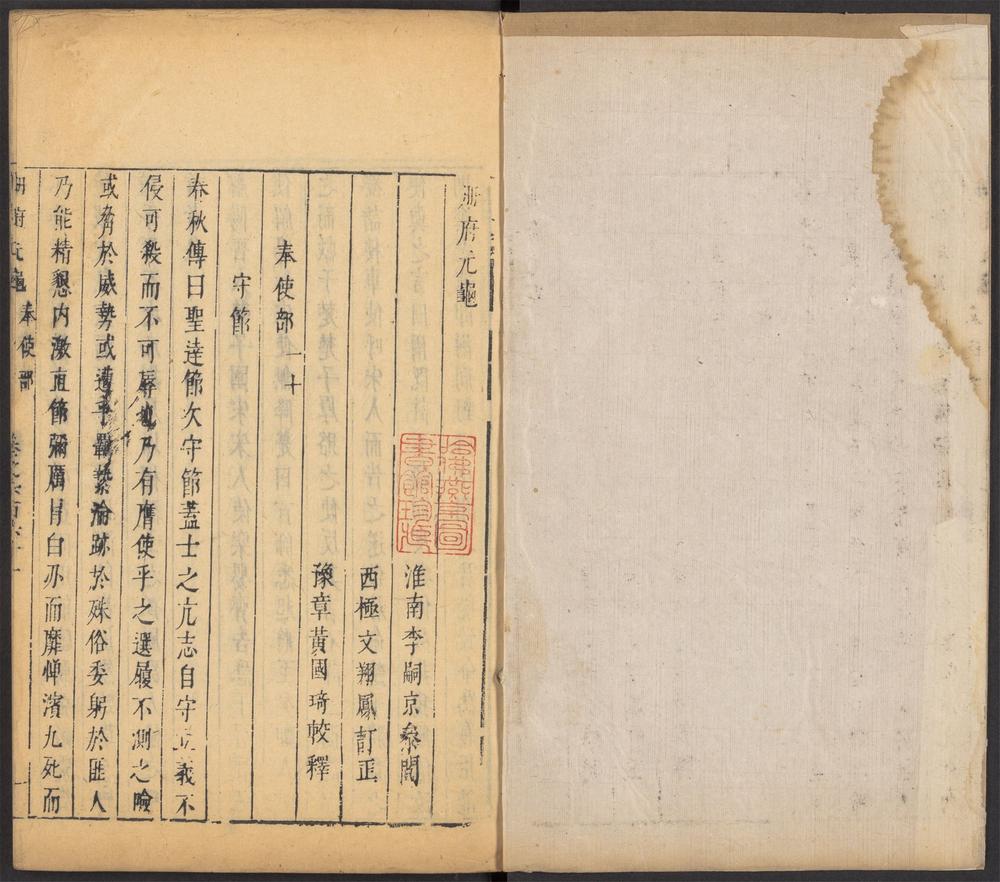 冊府元龜
淮南李嗣京叅閱
西極文翔鳳訂正
豫章黃國琦較釋
奉使部 一十
守節
春秋傳曰聖達節次守節蓋士之亢志自守立義不
侵可殺而不可辱也乃有膺使乎之選履不測之險
或脅於威勢或遭乎羈縶淪跡於殊俗委躬於匪人
乃能精懇內激直節彌厲冒白刃而靡憚濱九死而
冊府元龜 奉使部 卷之六百六十一 一
哈佛燕京圖書館珍藏